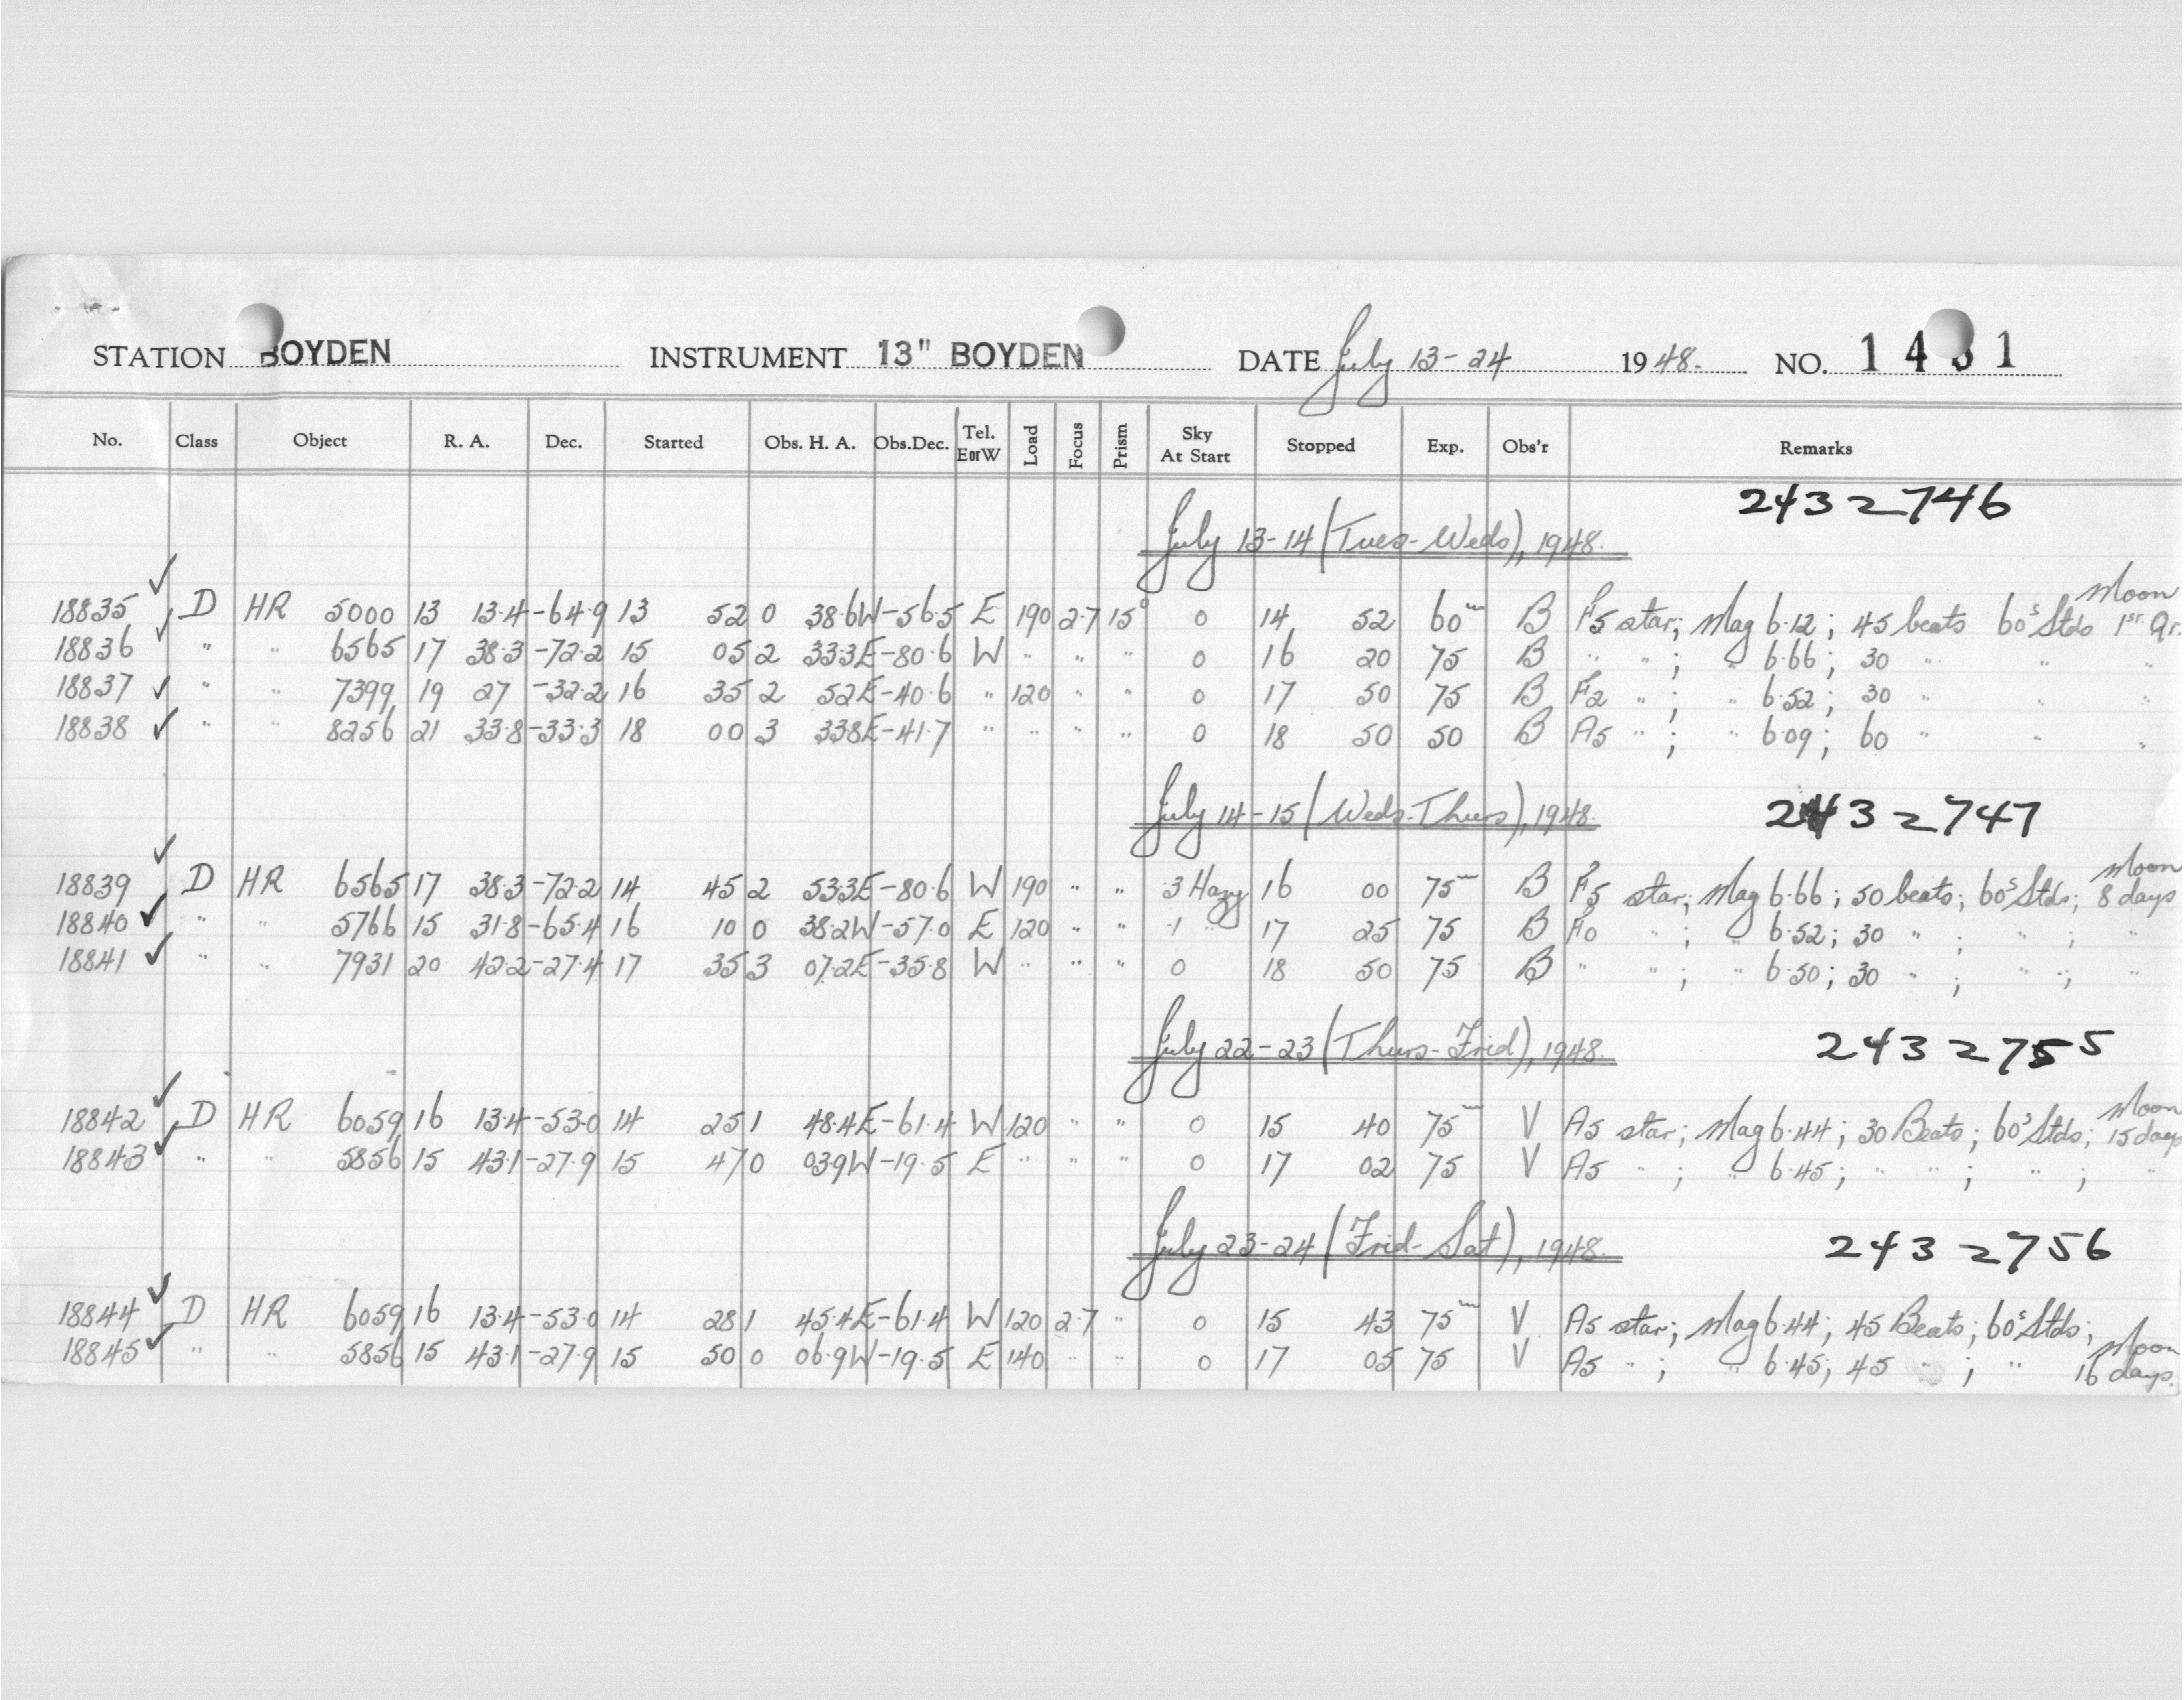 STATION BOYDEN INSTRUMENT 13" BOYDEN DATE July 13-24 1948. NO. 1431
No. Class Object R. A. Dec. Started Obs. H. A. Obs.Dec. Tel. E or W Load Focus Prism Sky At Start Stopped Exp. Obs'r Remarks
2432746
July 13-14 (Tues-Weds), 1948.
18835 ✓ D HR 5000 13 13.4 -64.9 13 52 0 38.6W -56.5 E 190 2.7 15° 0 14 52 60m B F5 star; Mag 6.12; 45 beats 60s Stds Moon 1st Qr.
18836 ✓ " " 6565 17 38.3 -72.2 15 05 2 33.3E -80.6 W " " " 0 16 20 75 B " " ; " 6.66; 30 " " "
18837 ✓ " " 7399 19 27 -32.2 16 35 2 52E -40.6 " 120 " " 0 17 50 75 B F2 " ; " 6.52; 30 " " "
18838 ✓ " " 8256 21 33.8 -33.3 18 00 3 33.8E -41.7 " " " " 0 18 50 50 B A5 " ; " 6.09; 60 " " "
July 14-15 (Weds-Thurs), 1948.
2432747
18839 ✓ D HR 6565 17 38.3 -72.2 14 45 2 53.3E -80.6 W 190 " " .3 Hazy 16 00 75m B F5 star; Mag 6.66; 50 beats; 60s Stds; Moon 8 days
18840 ✓ " " 5766 15 31.8 -65.4 16 10 0 38.2W -57.0 E 120 " " .1 " 17 25 75 B F0 " ; " 6.52; 30 " ; " ; "
18841 ✓ " " 7931 20 42.2 -27.4 17 35 3 07.2E -35.8 W " " " 0 18 50 75 B " " ; " 6.50; 30 " ; " ; "
July 22-23 (Thurs-Frid), 1948.
2432755
18842 ✓ D HR 6059 16 13.4 -53.0 14 25 1 48.4E -61.4 W 120 " " 0 15 40 75m V A5 star; Mag 6.44; 30 Beats; 60s Stds; Moon 15 days
18843 ✓ " " 5856 15 43.1 -27.9 15 47 0 03.9W -19.5 E " " " 0 17 02 75 V A5 " ; " 6.45; " " ; " ; "
July 23-24 (Frid-Sat), 1948.
2432756
18844 ✓ D HR 6059 16 13.4 -53.0 14 28 1 45.4E -61.4 W 120 2.7 " 0 15 43 75m V A5 star; Mag 6.44; 45 Beats; 60s Stds;
18845 ✓ " " 5856 15 43.1 -27.9 15 50 0 06.9W -19.5 E 140 " " 0 17 05 75 V A5 " ; " 6.45; 45 " ; " Moon 16 days.